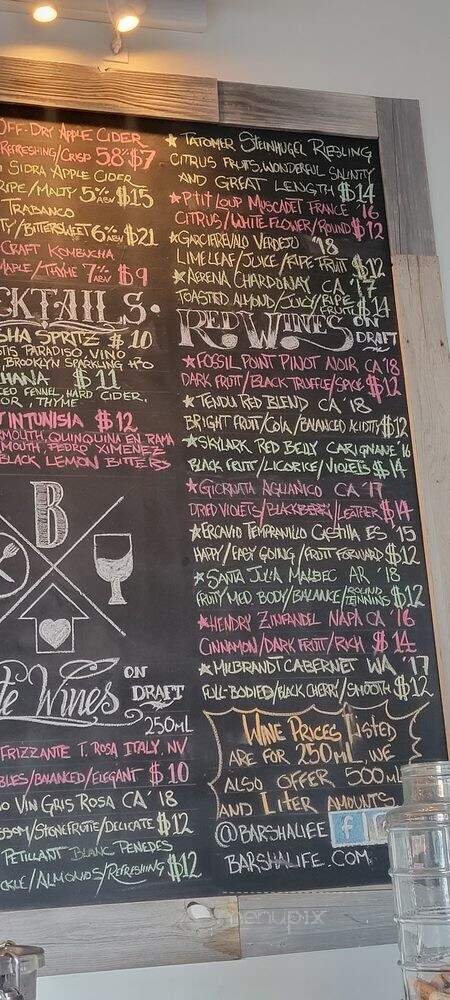 Off-Dry Apple Cider
Refreshing/Crisp 5.8% $7
Sidra Apple Cider
Ripe/Malty 5% ABV $15
Trabanco
/Bittersweet 6% ABV $21
Craft Kombucha
Maple/Thyme 7% ABV $9
CKTAILS.
SHA SPRITZ $10
PARADISO, VINO
BROOKLYN SPARKLING H2O
HANA $11
CED FENNEL, HARD CIDER,
THYME
T IN TUNISIA $12
MOUTH, QUINQUINA EN RAMA
MOUTH, PEDRO XIMENEZ
BLACK LEMON BITTERS
B
te Wines ON
DRAFT
250ML
FRIZZANTE T. ROSA ITALY, NV
BLES/BALANCED/ELEGANT $10
O VIN GRIS ROSA CA '18
SSOM/STONEFRUITE/DELICATE $12
PETILLANT BLANC PENEDES
CKLE/ALMONDS/REFRESHING $12
★ TATOMER STEINHUGEL RIESLING
CITRUS FRUITS, WONDERFUL SALINITY
AND GREAT LENGTH $14
★ P'TIT LOUP MUSCADET FRANCE '16
CITRUS/WHITE FLOWER/ROUND $12
★ GARCIAREVALO VERDEJO '18
LIME LEAF/JUICE/RIPE FRUIT $12
★ AERENA CHARDONNAY CA '17
TOASTED ALMOND/JUICY/RIPE FRUIT $14
RED WINES ON
DRAFT
★ FOSSIL POINT PINOT NOIR CA '18
DARK FRUIT/BLACK TRUFFLE/SPICE $12
★ TENDU RED BLEND CA '18
BRIGHT FRUIT/COLA/BALANCED ACIDITY $12
★ SKYLARK RED BELLY CARIGNANE '16
BLACK FRUIT/LICORICE/VIOLETS $14
★ GIORNATA AGLIANICO CA '17
DRIED VIOLETS/BLACKBERRY/LEATHER $14
★ ERCAVIO TEMPRANILLO CASTILLA ES '15
HAPPY/EASY GOING/FRUIT FORWARD $12
★ SANTA JULIA MALBEC AR '18
FRUITY/MED BODY/BALANCE/ROUND TANNINS $12
★ HENDRY ZINFANDEL NAPA CA '16
CINNAMON/DARK FRUIT/RICH $14
★ MILBRANDT CABERNET WA '17
FULL-BODIED/BLACK CHERRY/SMOOTH $12
WINE PRICES LISTED
ARE FOR 250ML, WE
ALSO OFFER 500ML
AND LITER AMOUNTS
@BARSHALIFE f
BARSHALIFE.COM
menupix